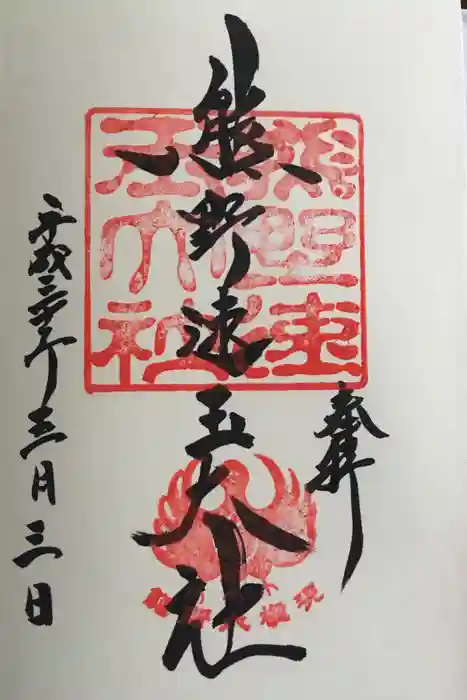 奉拝
熊野速玉大社
平成三十年三月三日
熊野速
玉大社